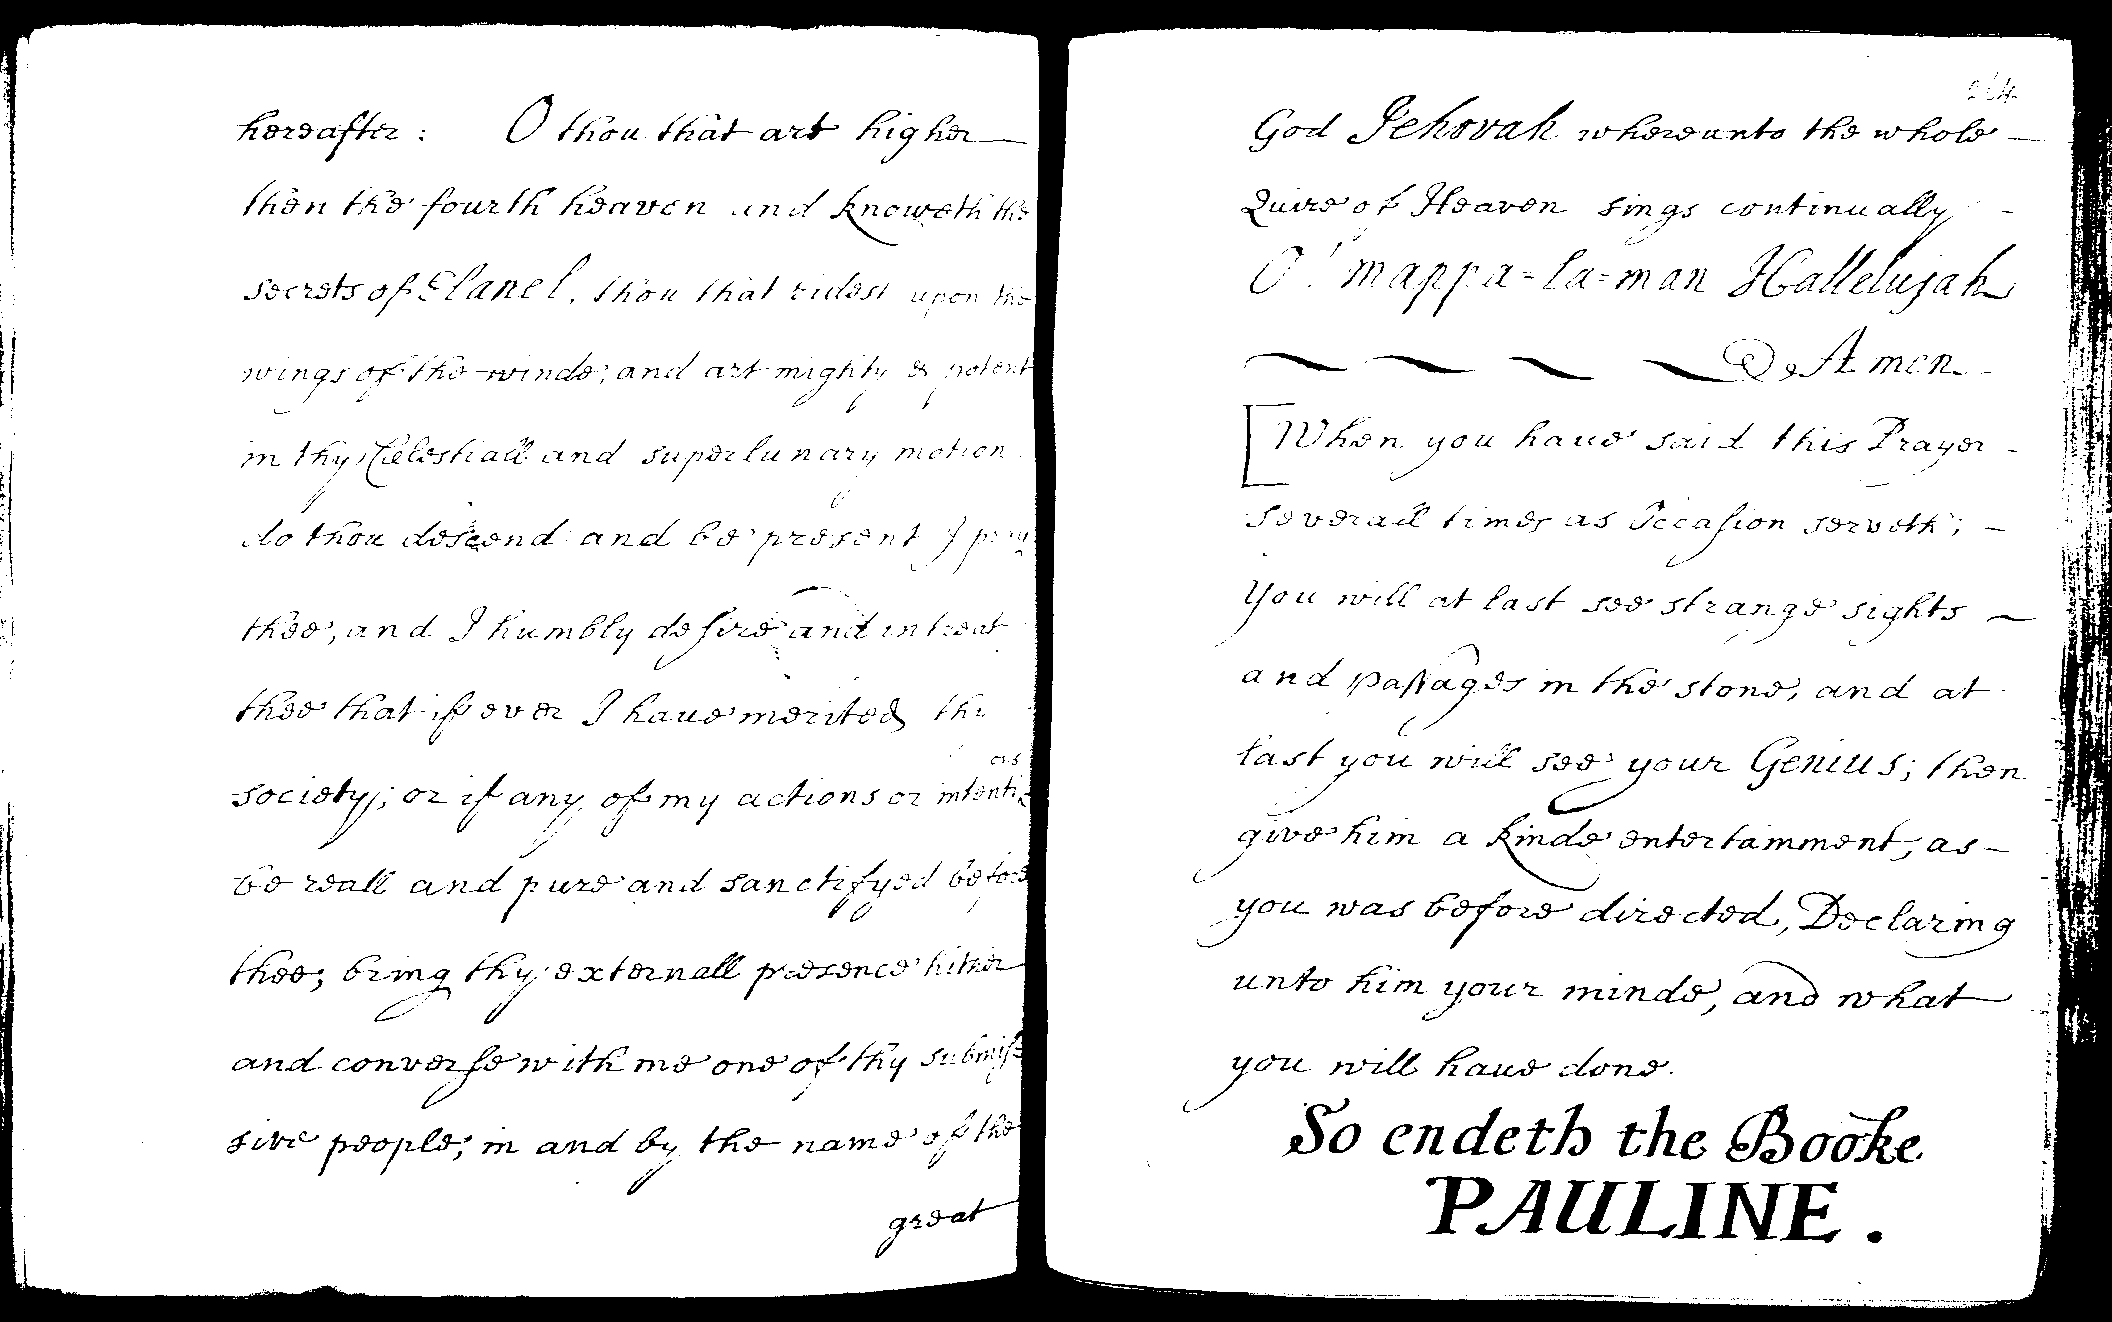 hereafter : O thou that art higher
then the fourth heaven and knoweth the
secrets of Elanel, thou that ridest upon the
wings of the winde; and art mighty & potent
in thy Celestiall and superlunary motion
do thou descend and be present I pray
thee, and I humbly desire and intreat
thee that if ever I have merited thi
society; or if any of my actions or intenti=
ons
be reall and pure and sanctifyed before
thee; bring thy externall presence hither
and converse with me one of thy submis=
sive people; in and by the name of the
great
God Jehovah whereunto the whole
Quire of Heaven sings continually
O! mappa=la=man Hallelujah
Amen.
[When you have said this Prayer
severall times as Occasion serveth;
You will at last see strange sights
and passages in the stone, and at
last you will see your Genius; then
give him a kinde entertainment, as
you was before directed, Declaring
unto him your minde, and what
you will have done.
So endeth the Booke
PAULINE.